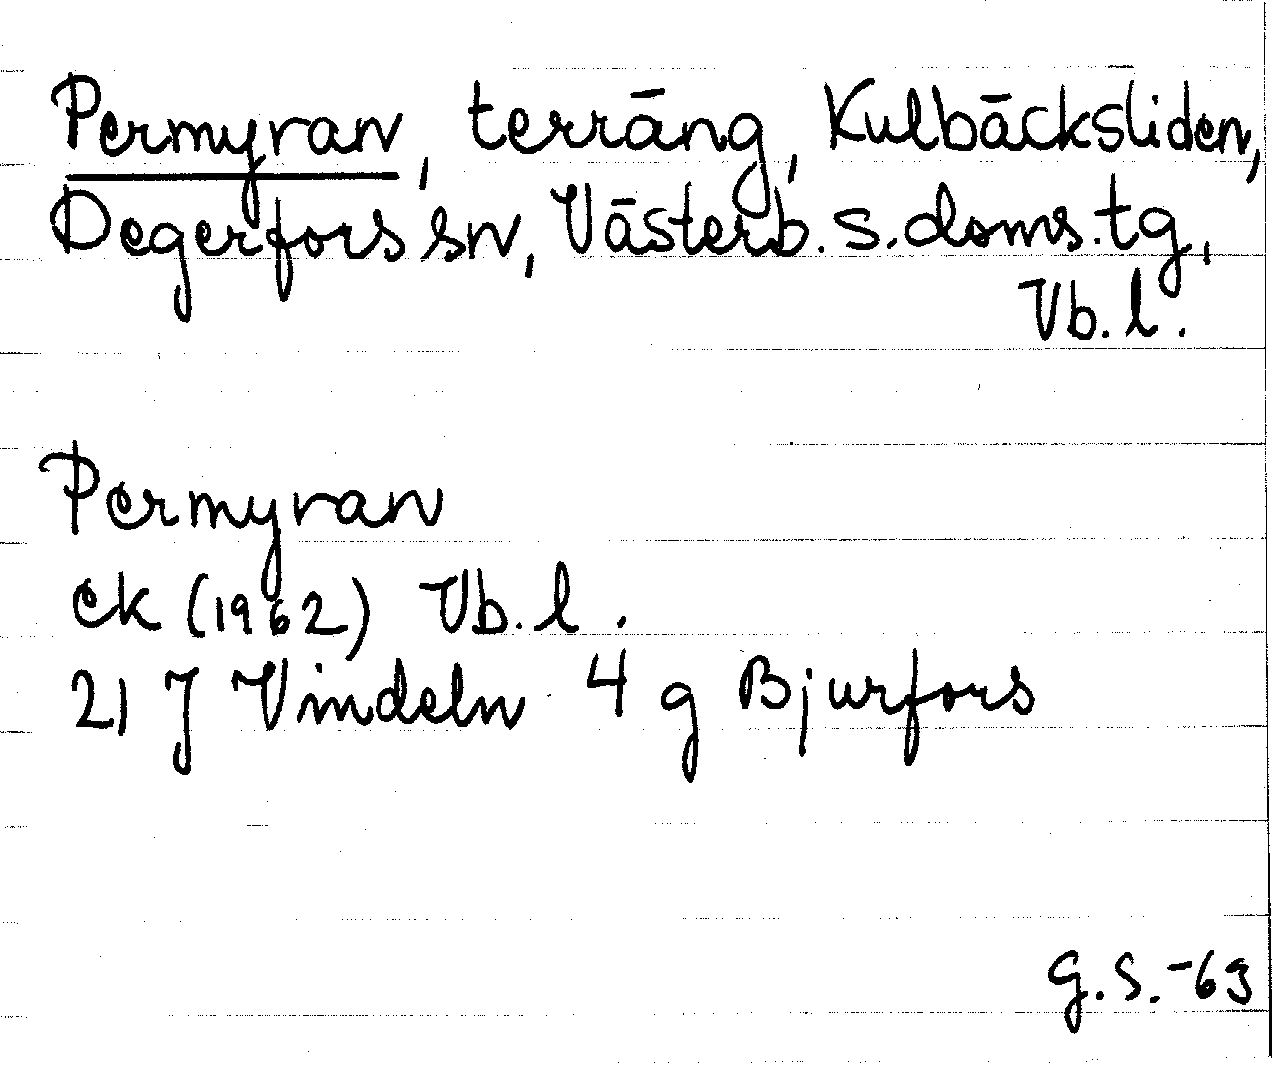 Permyran, terräng, Kulbäcksliden,
Degerfors sn, Västerb. s. doms. tg,
Vb. l.
Permyran
ek (1962) Vb. l.
21 J Vindeln 4 g Bjurfors
G. S. -63